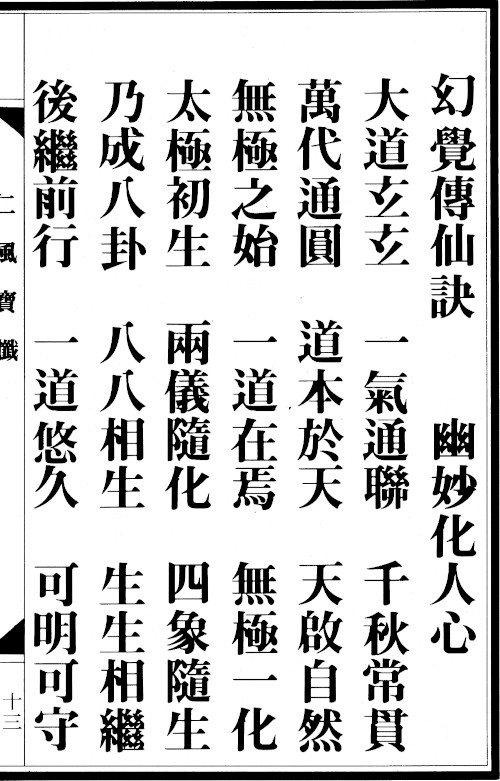 幻覺傳仙訣　幽妙化人心
大道玄玄　一氣通聯　千秋常貫
萬代通圓　道本於天　天啟自然
無極之始　一道在焉　無極一化
太極初生　兩儀隨化　四象隨生
乃成八卦　八八相生　生生相繼
後繼前行　一道悠久　可明可守
仁風寶懺
十三